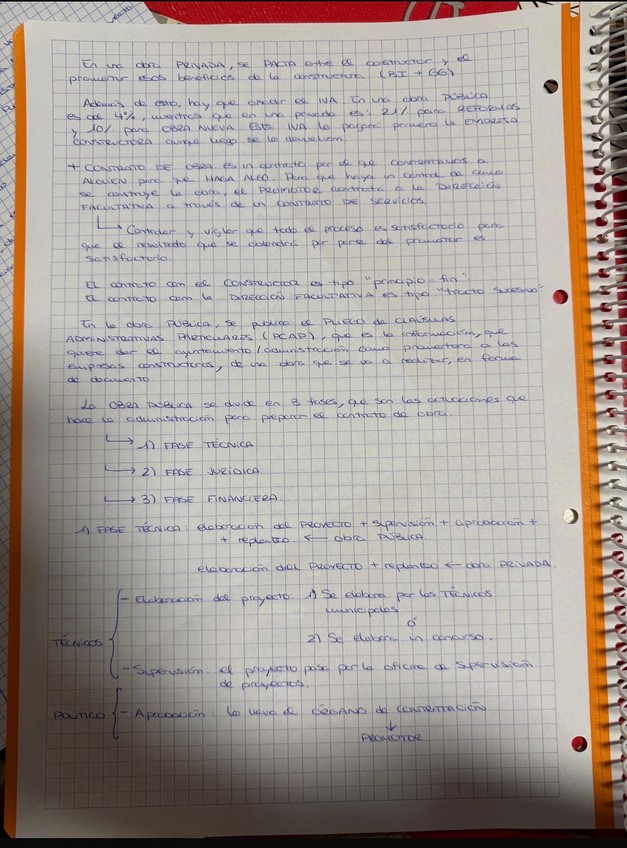 En una obra PRIVADA, se PACTA entre el constructor y el
promotor esos beneficios de la constructora (BI + GG)
Además de esto, hay que añadir el IVA. En una obra PÚBLICA
es del 4%, mientras que en una privada es: 21% para REFORMAS
y 10% para OBRA NUEVA. Este IVA lo pagará primero la EMPRESA
CONSTRUCTORA aunque luego se lo devuelvan.
+ CONTRATO DE OBRA es un contrato por el que CONTRATAMOS a
ALGUIEN para que HAGA ALGO. Para que haya un control de cómo
se construye la obra, el PROMOTOR contrata a la DIRECCIÓN
FACULTATIVA a través de un CONTRATO DE SERVICIOS.
↳ Controlar y vigilar que todo el proceso es satisfactorio para
que el resultado que se obtendrá por parte del promotor es
satisfactorio.
El contrato con el CONSTRUCTOR es tipo "principio-fin".
El contrato con la DIRECCIÓN FACULTATIVA es tipo "tracto sucesivo".
En la obra PÚBLICA, se publica el PLIEGO DE CLÁUSULAS
ADMINISTRATIVAS PARTICULARES (PCAP), que es la información, que
quiere dar el ayuntamiento/administración como promotora a las
empresas constructoras, de una obra que se va a realizar, en forma
de documento.
La OBRA PÚBLICA se divide en 3 fases, que son las actuaciones que
hace la administración para preparar el contrato de obra.
↳ 1) FASE TÉCNICA
↳ 2) FASE JURÍDICA
↳ 3) FASE FINANCIERA
1) FASE TÉCNICA: elaboración del PROYECTO + supervisión + aprobación +
+ replanteo. ← obra PÚBLICA.
elaboración del PROYECTO + replanteo ← obra PRIVADA.
- Elaboración del proyecto: 1) Se elabora por los TÉCNICOS
municipales
ó
2) Se elabora un concurso.
TÉCNICOS
- Supervisión: el proyecto pasa por la oficina de supervisión
de proyectos.
POLÍTICO - Aprobación: lo lleva el ÓRGANO DE CONTRATACIÓN
↓
PROMOTOR